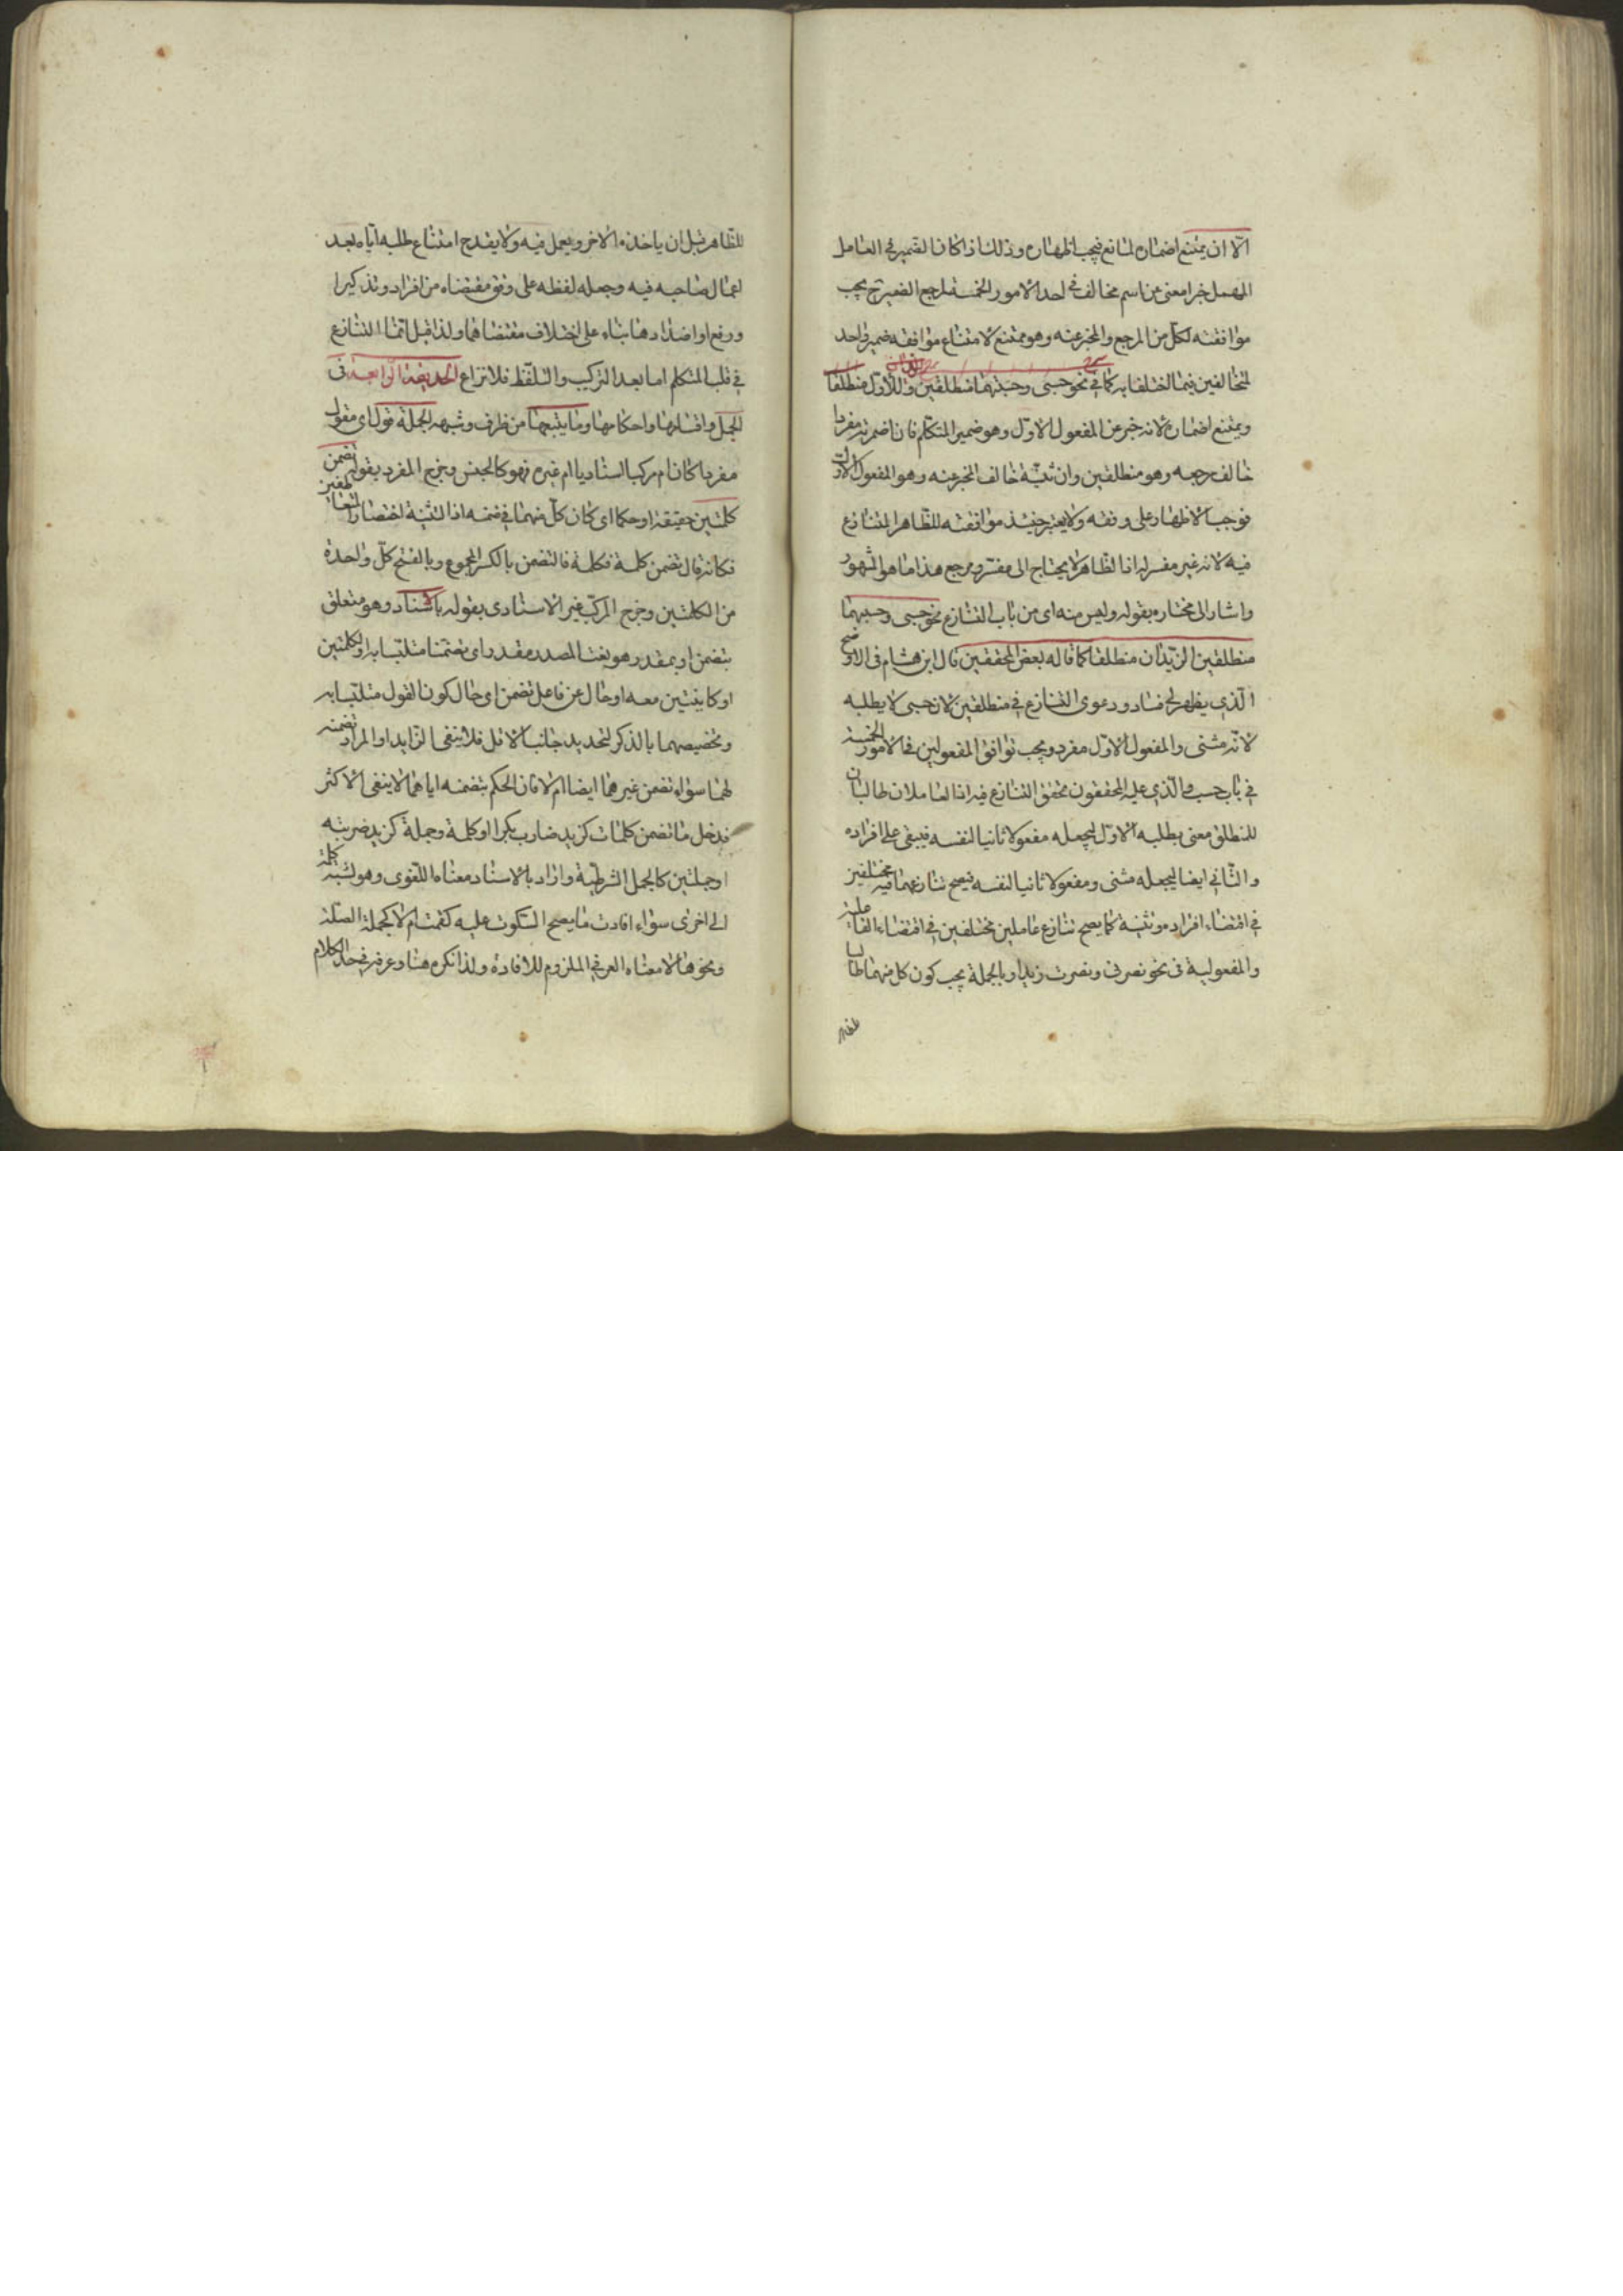 الّا ان يمتنع اضماره لمانع فيجب اظهاره وذلك اذا كان الضمير فى العامل
المهمل خبرا معنى عن اسم مخالف فى احد الامور الخمسة لمرجع الضمير ح يجب
موافقته لكل من المرجع والمخبر عنه وهو ممتنع لامتناع موافقة ضمير واحد
لمتخالفين فيما اختلفا به كما فى نحو حسبنى وحسبتهما منطلقين الزيدان منطلقا
ويمتنع اضماره لانه خبر عن المفعول الاوّل وهو ضمير المتكلم فان اضمرته مفردا
خالف مرجعه وهو منطلقين وان ثنيّته خالف المخبر عنه وهو المفعول الاول
فوجب الاظهار على وفقه ولا يعتبر حينئذ موافقته للظاهر المتنازع
فيه لانه غير مفسر له اذ الظاهر لا يحتاج الى مفسر ومرجع هذا ما هو المشهور
واشار الى مختاره بقوله وليس منه اى من باب التنازع نحو حسبنى وحسبتهما
منطلقين الزيدان منطلقا كما قاله بعض المحققين قال ابن هشام فى الاوضح
الّذى يظهر لى فساد دعوى التنازع فى منطلقين لان حسبنى لا يطلبه
لانه مثنى والمفعول الاوّل مفرد ويجب توافق المفعولين فى الامور الخمسة
فى باب حسب والّذى عليه المحققون تحقق التنازع فيه اذ العاملان طالبان
للمنطلق معنى يطلبه الاوّل ليجعله مفعولا ثانيا لنفسه فيبقى على افراده
والثّانى ايضا ليجعله مثنى ومفعولا ثانيا لنفسه فيصح تنازعهما فيه مختلفين
فى اقتضاء افراده وتثنيته كما يصح تنازع عاملين مختلفين فى اقتضاء الفاعلية
والمفعولية فى نحو نصرنى ونصرت زيدا وبالجملة يجب كون كل منهما طالبا
للظاهر
للظّاهر قبل ان ياخذه الاخر ويعمل فيه ولا يقدح امتناع طلبه ايّاه بعد
اعمال صاحبه فيه وجعله لفظه على وفق مقتضاه من افراد وتذكير
ورفع او اضدادها بناء على اختلاف مقتضاهما ولذا قيل انّما التنازع
فى قلب المتكلم اما بعد التركيب والتلفّظ فلا نزاع الحديقة الرابعة فى
الجمل واقسامها واحكامها وما يتبعها من ظرف وشبهه الجملة قول اى مقول
مفردا كان ام مركبا اسناديا ام غيره فهو كالجنس وخرج المفرد بقوله تضمن
كلمتين حقيقة او حكما اى كان كلّ منهما فى ضمنه اذ التثنية اختصار العاطفين
فكانه قال تضمن كلمة فكلمة فالتضمن بالكسر المجموع وبالفتح كلّ واحدة
من الكلمتين وخرج المركب غير الاسنادى بقوله باسناد وهو متعلق
بتضمن او بمقدر وهو نعت المصدر مقدر اى تضمنا متلبّسا به او كلمتين
او كاينتين معه او حال عن فاعل تضمن اى حال كون القول متلبّسا به
وتخصيصهما بالذكر لتحديد جانب الاقل فلا ينفى الزايد او المراد تضمنه
لهما سواء تضمن غيرهما ايضا ام لا فان الحكم بتضمنه اياهما لا ينفى الاكثر
فدخل ما تضمن كلمات كزيد ضارب بكرا او كلمة وجملة كزيد ضربته
او جملتين كالجمل الشرطية واراد بالاسناد معناه اللّغوى وهو نسبة كلمة
الى اخرى سواء افادت ما يصح السكوت عليه كقمت ام لا كجملة الصلة
ونحوها لا معناه العرفى الملزوم للافادة ولذا نكره هنا وعرفه فى حد الكلام